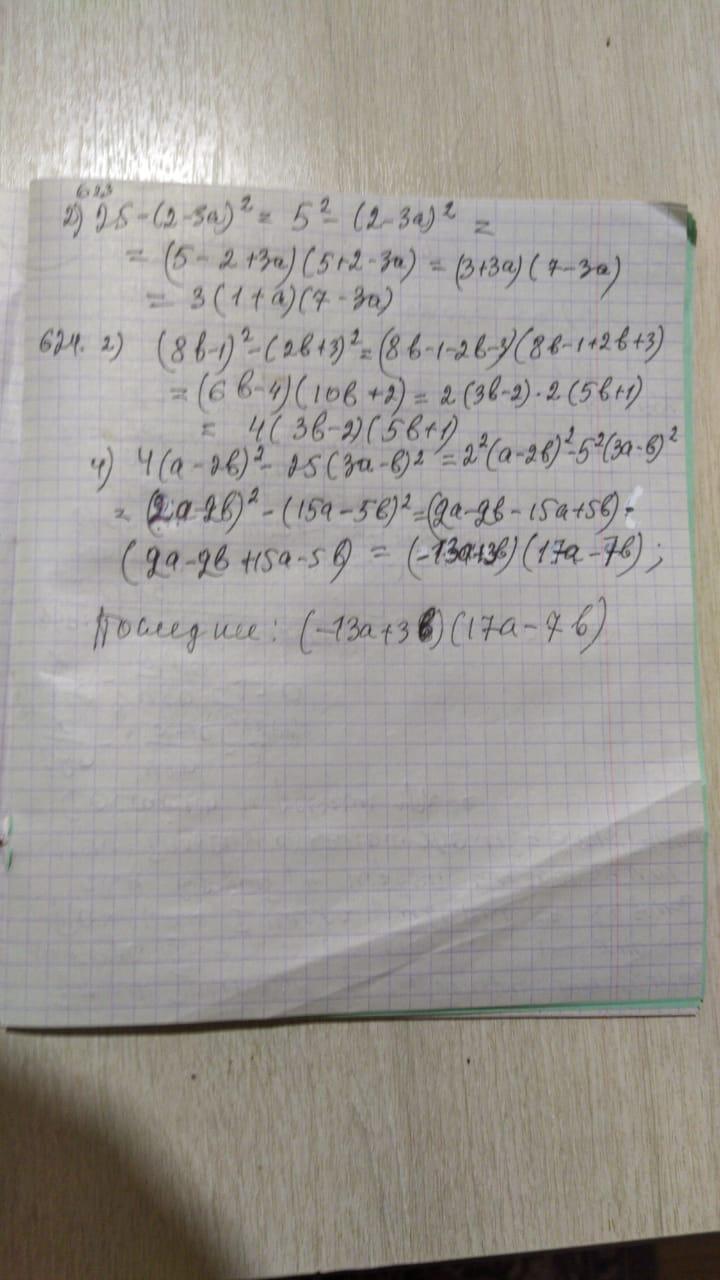 623
2) 25-(2-3a)² = 5² - (2-3a)² =
= (5-2+3a)(5+2-3a) = (3+3a)(7-3a)
= 3(1+a)(7-3a)
624. 2) (8b-1)²-(2b+3)²=(8b-1-2b-3)(8b-1+2b+3)
= (6b-4)(10b+2) = 2(3b-2)·2(5b+1)
= 4(3b-2)(5b+1)
4) 4(a-2b)² - 25(3a-b)² = 2²(a-2b)²-5²(3a-b)²
= (2a-2b)²-(15a-5b)²=(2a-2b-15a+5b)·
(2a-2b+15a-5b) = (-13a+3b)(17a-7b);
Последние: (-13a+3b)(17a-7b)